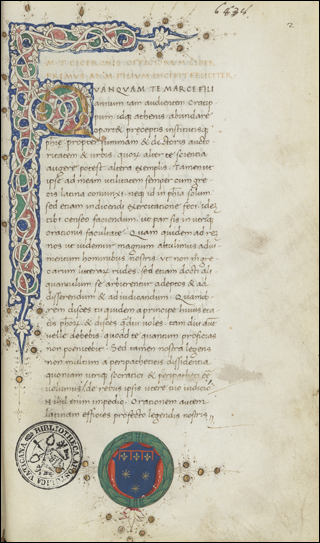 6434
2
M. T. CICERONIS
VANQVAM TE MARCE FILI
annum iam audientem Cratip
pum idq athenis abundare
oportet preceptis institutisq
phie propter summam & doctoris aucto
ritatem & urbis quorum alter te scientia
augere potest altera exemplis tamen ut
ipse ad meam utilitatem semper cum gre
cis latina coniunxi neq id in phia solum
sed etiam in dicendi exercitatione feci idem
tibi censeo faciendum ut par sis in utriusq
orationis facultate Quam quidem ad rem
nos ut uidemur magnum attulimus adiu
mentum hominibus nostris ut non modo gre
carum litterarum rudes sed etiam docti ali
quantulum se arbitrentur adeptos & ad
disserendum & ad iudicandum Quamob
rem disces tu quidem a principe huius eta
tis phorum & disces q diu uoles tam diu aut
uelle debebis quoad te quantum proficias
non penitebit Sed tamen nostra legens
non multum a peripatheticis dissidentia
quoniam utriq socratici & 
uolumus de rebus ipsis utere tuo iudicio
nihil enim impedio Orationem autem
latinam efficies profecto legendis nostris
BIBLIOTHECA APOSTOLICA VATICANA